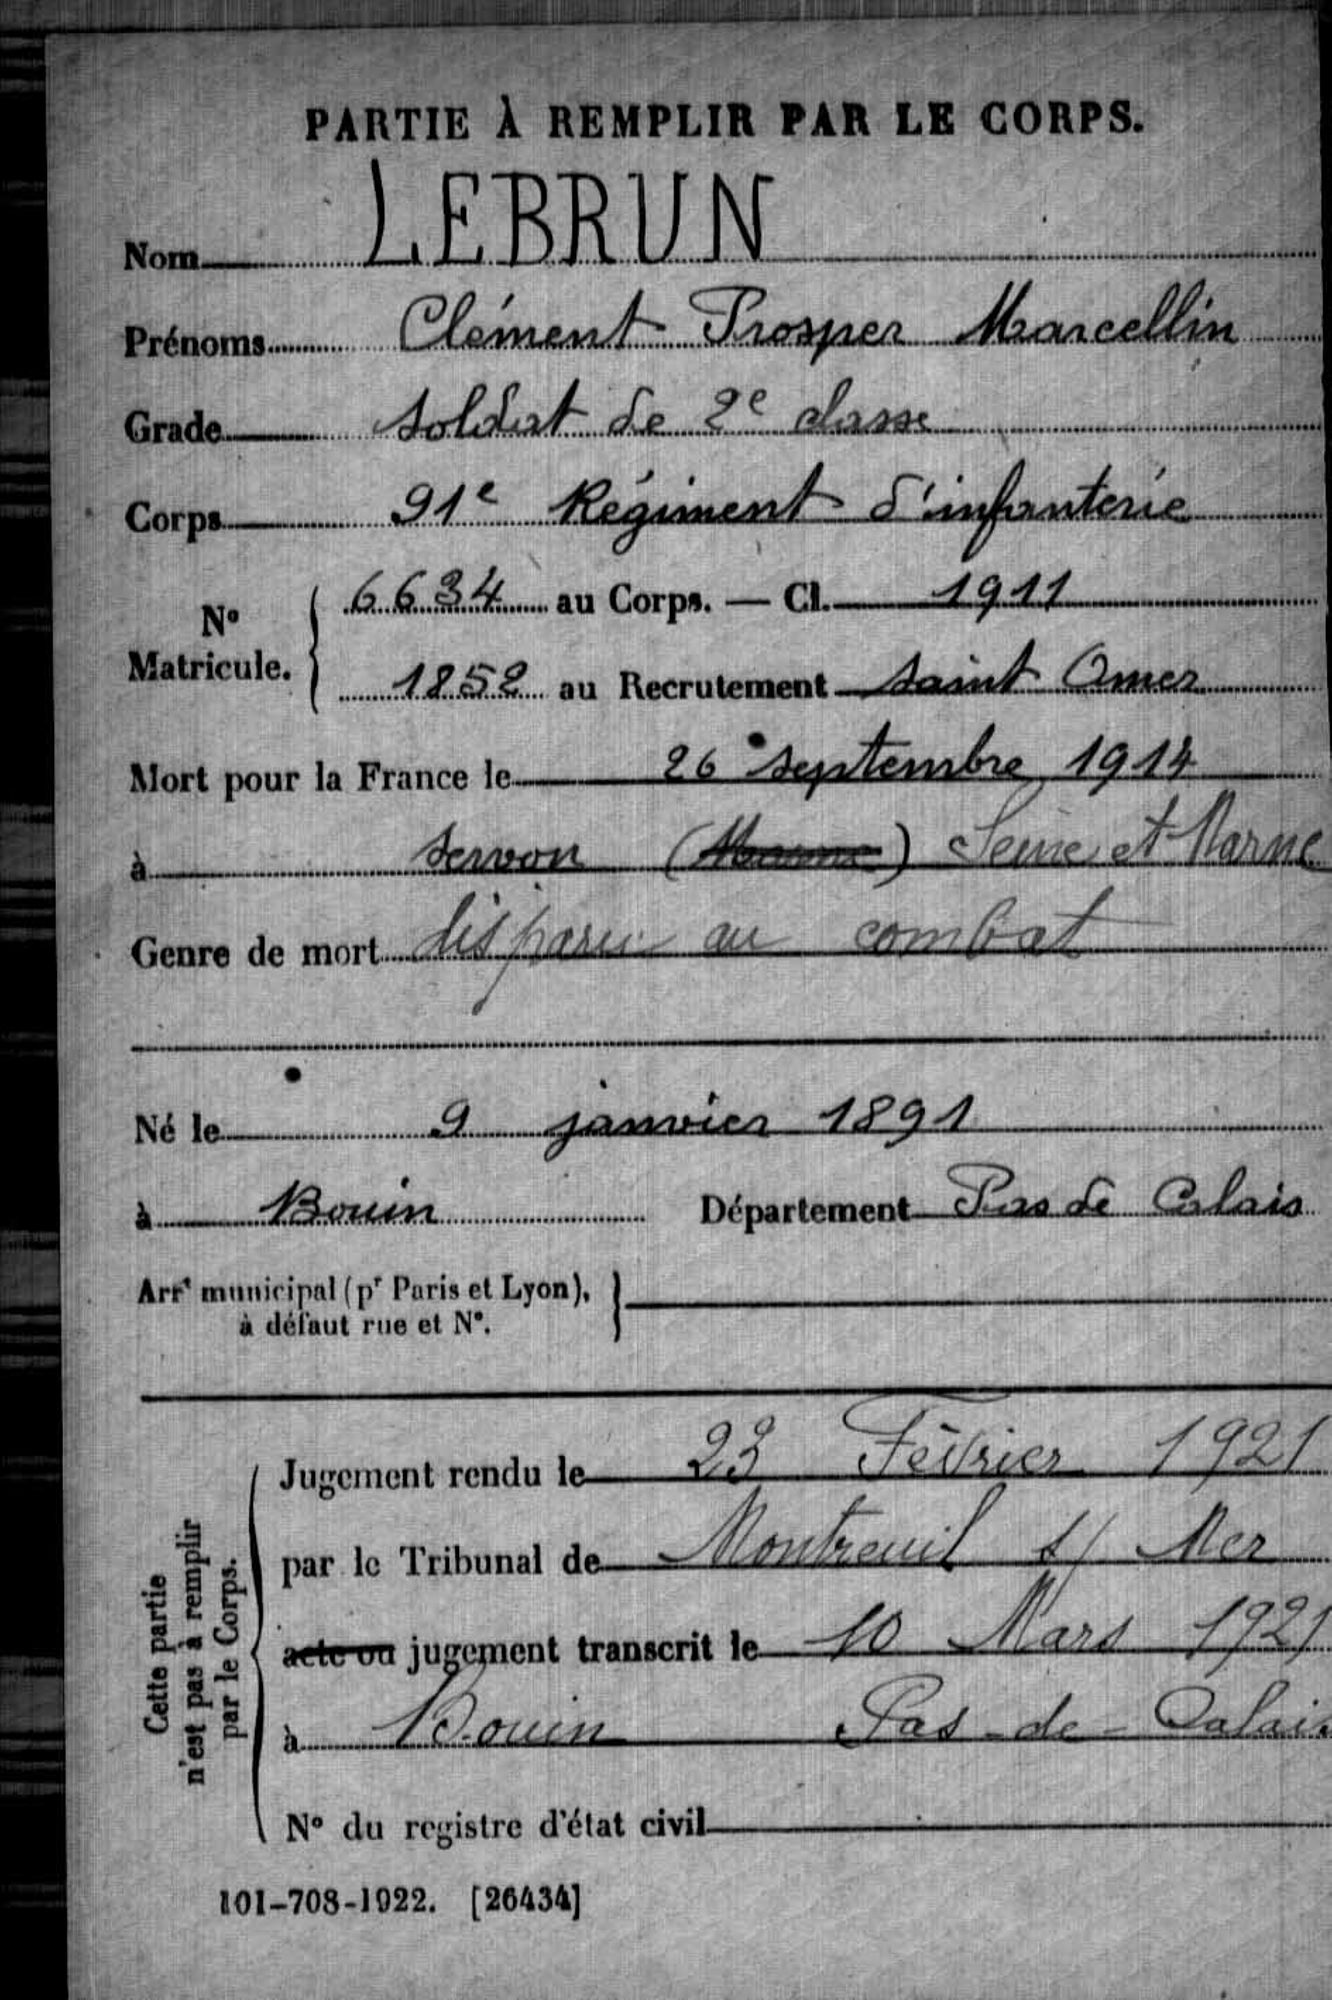 PARTIE À REMPLIR PAR LE CORPS.
Nom LEBRUN
Prénoms Clément Prosper Marcellin
Grade Soldat de 2e classe
Corps 91e Régiment d'infanterie
No Matricule. { 6634 au Corps. — Cl. 1911
1852 au Recrutement Saint Omer
Mort pour la France le 26 septembre 1914
à Servon (Marne) Seine et Marne
Genre de mort disparu au combat
Né le 9 janvier 1891
à Bouin Département Pas de Calais
Arrt municipal (pr Paris et Lyon),
à défaut rue et N°.
Cette partie
n'est pas à remplir
par le Corps.
Jugement rendu le 23 Février 1921
par le Tribunal de Montreuil s/ Mer
acte ou jugement transcrit le 10 Mars 1921
à Bouin Pas-de-Calais
N° du registre d'état civil
101-708-1922. [26434]